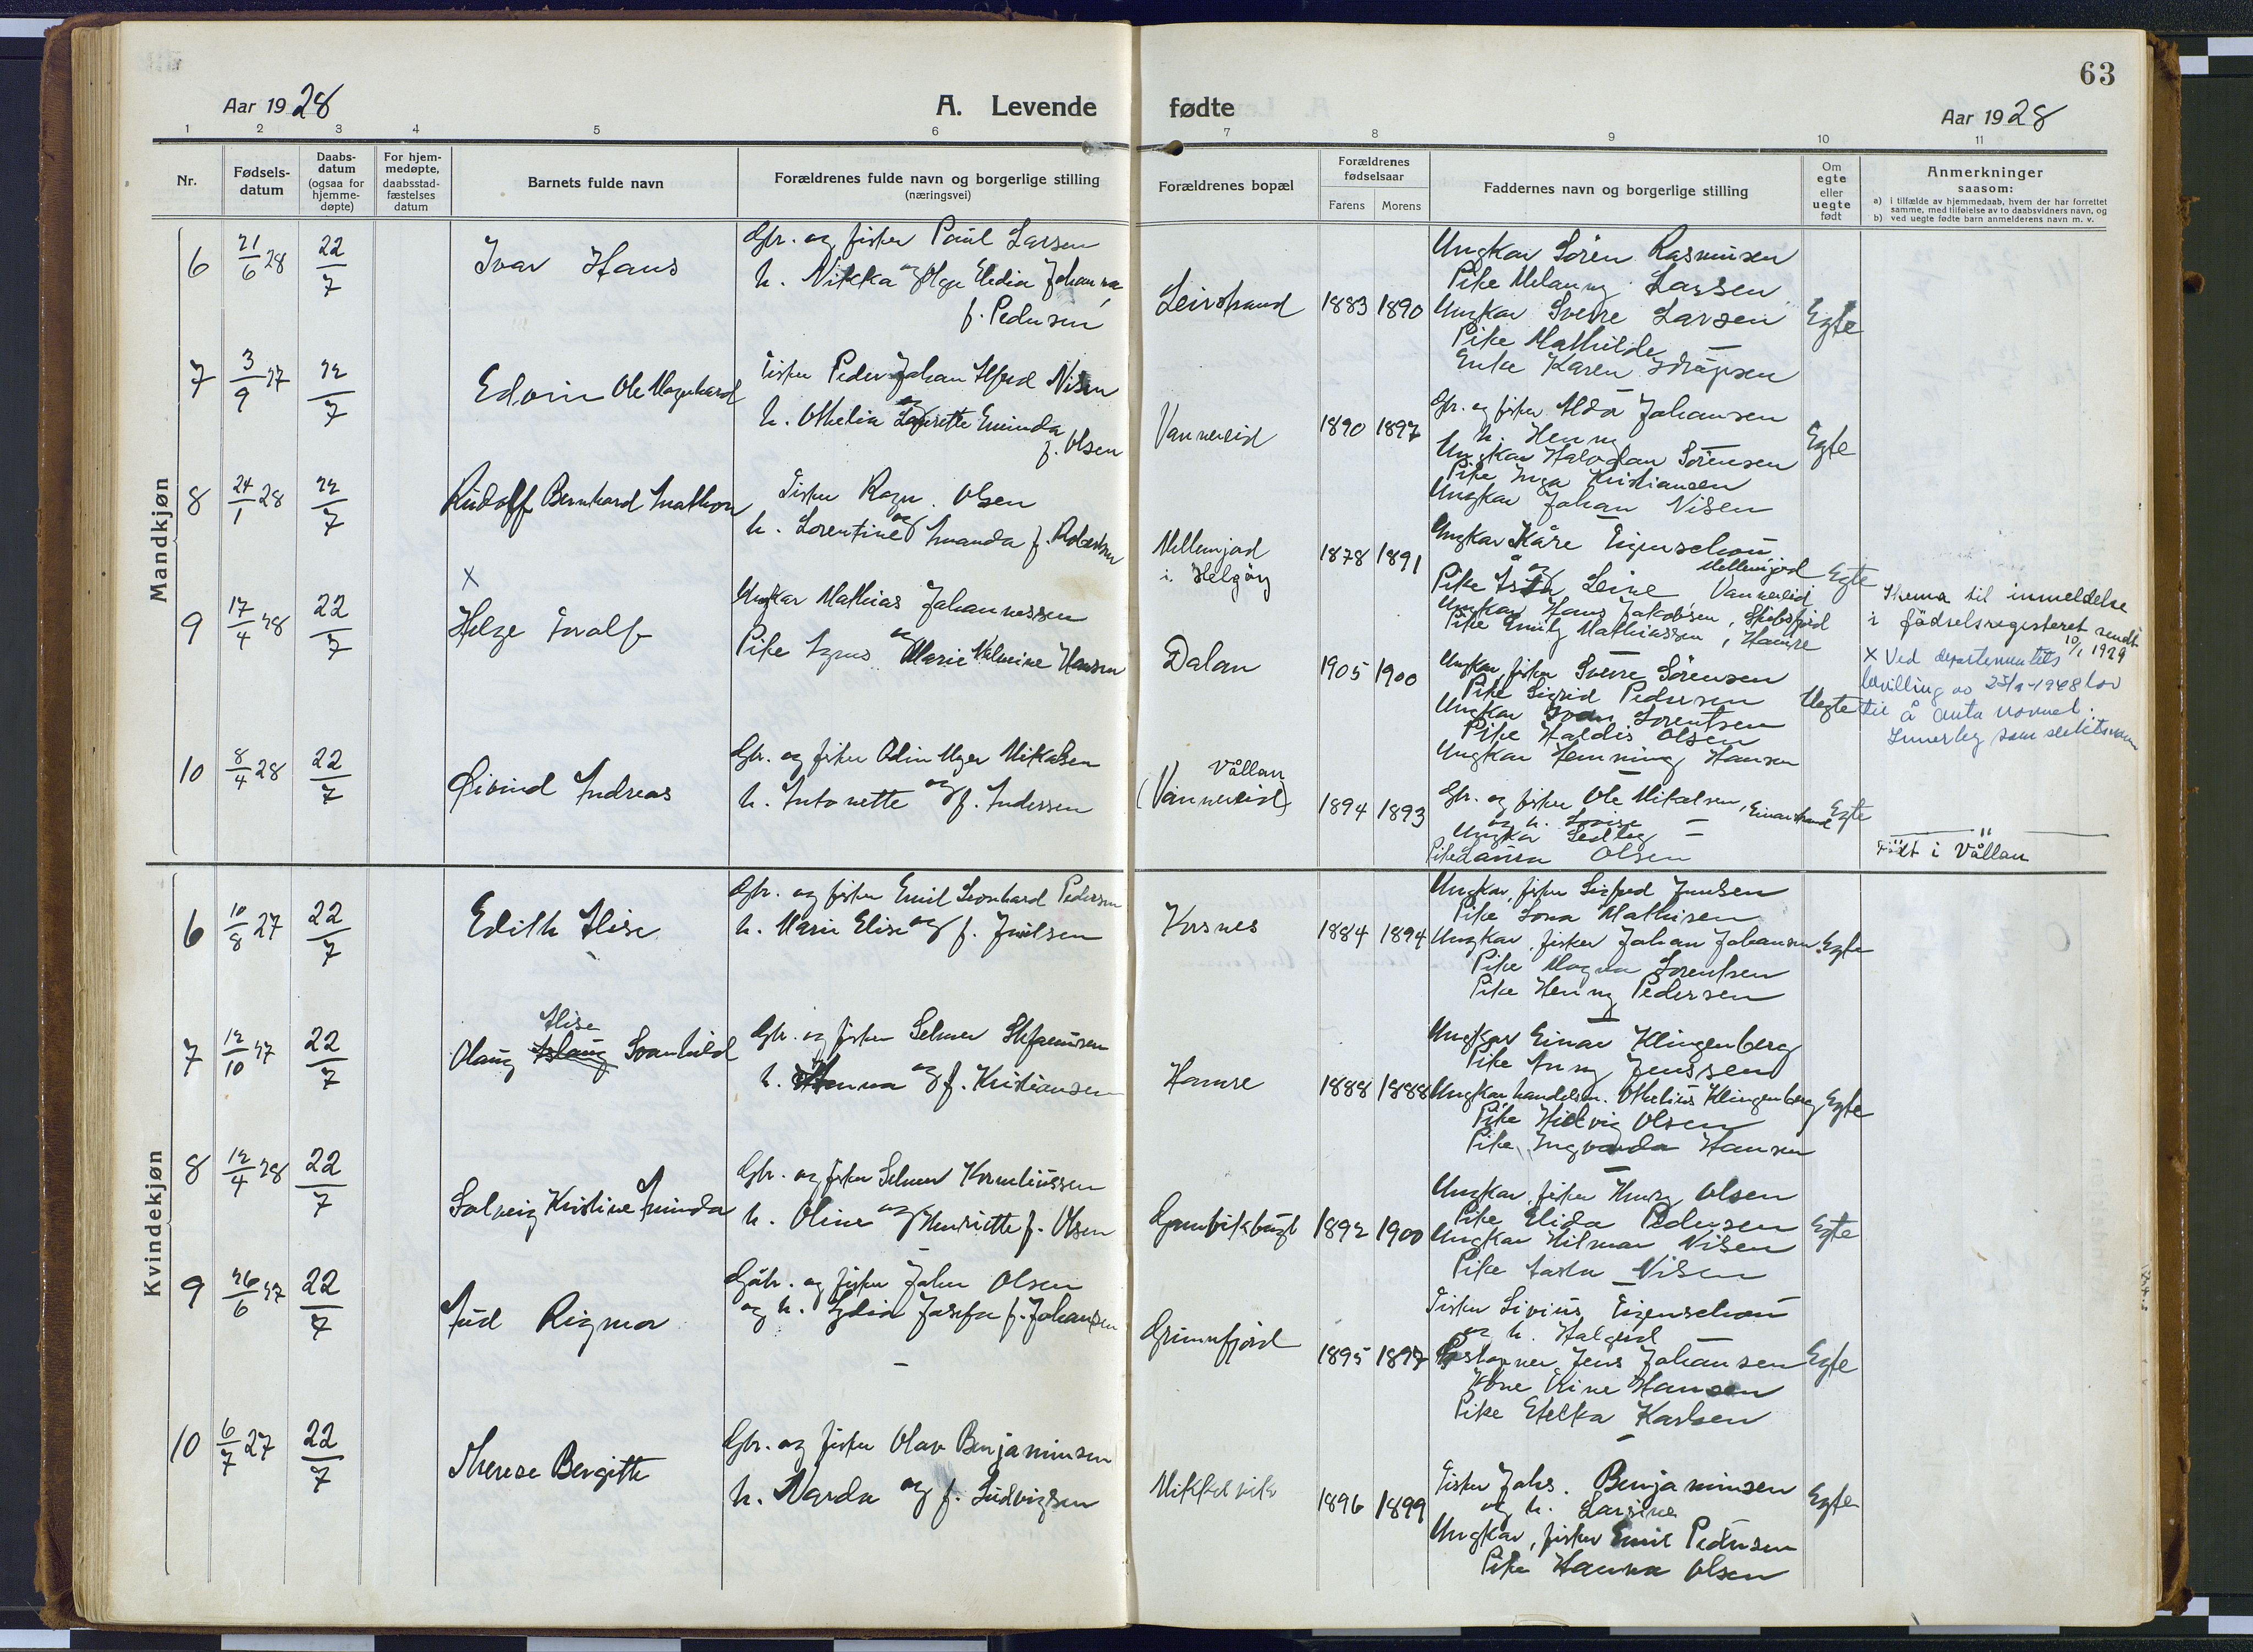 63
Aar 1928
A. Levende fødte
Aar 1928
1 2 3 4 5 6 7 8 9 10 11
Nr.
Fødsels-
datum
Daabs-
datum
(ogsaa for
hjemme-
døpte)
For hjem-
medøpte,
daabsstad-
fæstelses
datum
Barnets fulde navn
Forældrenes fulde navn og borgerlige stilling
(næringsvei)
Forældrenes bopæl
Forældrenes
fødselsaar
Farens Morens
Faddernes navn og borgerlige stilling
Om
egte
eller
uegte
født
Anmerkninger
saasom:
a) i tilfælde av hjemmedaab, hvem der har forrettet
samme, med tilføielse av to daabsvidners navn, og
b) ved uegte fødte barn anmelderens navn m. v.
Mandkjøn
6 21/6 28 22/7 Ivar Hans
Gbr. og fisker Paul Larsen
h. Nikka og Olga Elidia Johanna
f. Pedersen
Leirstrand 1883 1890
Ungkar Sören Rasmusen
Pike Larsen
Ungkar Sverre Larsen
Pike Mathilde —
Enke Karen
Egte
7 3/9 27 22/7 Edvin Ole Magnhard
Fisker Peder Johan Alfred Nilsen
og
h. Othelia Laurette Eminda
f. Olsen
Vannereid 1890 1897
Gbr. og fisker Johansen
h. Henny —
Ungkar Halvdan Sörensen
Pike Inga Kristiansen
Ungkar Johan Nilsen
Egte
8 24/1 28 22/7 Rudolf Bernhard Mathon
Fisker Ragn. Olsen
og
h. Lorentine Amanda f. Robertsen
Mellemjord
i Helgöy
1878 1891
Ungkar Kåre Eigenschou
og Mellemjord
Pike Leine Vannereid
Ungkar Hans Jakobsen, Skibsfjord
Pike Emily Mathiassen, Hamre
Egte
9 17/4 28 22/7 x
Helge Toralf
Ungkar Mathias Johannessen
og
Pike Agnes Marie Valmine Hansen
Dalan 1905 1900
Ungkar, fisker Sverre Sörensen
Pike Sigrid Pedersen
Ungkar Ivan Lorentsen
Pike Haldis Olsen
Ungkar Henning Hansen
Uegte
Skema til inmeldelse
i födselsregisteret sendt
10/1 1929
x Ved departementets
bevilling av 25/9-1948 lov
til å anta navnet
som slektsnavn
10 8/4 28 22/7 Øivind Andreas
Gbr. og fisker Odin Unger Mikalsen
h. Antonette og f. Andersen
Vållan
(Vannereid)
1894 1893
Gbr. og fisker Ole Mikalsen, Einarstrand
og h. Lovise —
Ungkar Sedley —
Pike Laura Olsen
Egte
"
Födt i Vållan
Kvindekjøn
6 10/8 27 22/7 Edith Alise
Gbr. og fisker Emil Leonhard Pedersen
h. Marie Elise og f. Juulsen
Korsnes 1884 1894
Ungkar, fisker Sigfred Juulsen
Pike Lona Mathisen
Ungkar, fisker Johan Johansen
Pike Magna Lorentsen
Pike Henny Pedersen
Egte
7 12/10 27 22/7 Alise
Olaug Aslaug Svanhild
Gbr. og fisker Selmer Stefanussen
h. Anna og f. Kristiansen
Hamre 1888 1888
Ungkar Einar Klingenberg
Pike Anny Jenssen
Ungkar, handelsm. Othelius Klingenberg
Pike Hedvig Olsen
Pike Ingvarda Hansen
Egte
8 12/4 28 22/7 Solveig Kristine Aminda
Gbr. og fisker Selmer Korneliussen
h. Oline og Henriette f. Olsen
Grunvikbugt 1892 1900
Ungkar, fisker Henry Olsen
Pike Elida Pedersen
Ungkar Hilmar Nilsen
Pike Aasta Nilsen
Egte
9 26/6 27 22/7 Aud Rigmor
Gbr. og fisker Johan Olsen
og h. Lydia Josefa f. Johansen
Grunnfjord 1895 1897
Fisker Livius Eigenschou
og h. Halgerd —
Jens Johansen
Kone Trine Hansen
Pike Etelka Karlsen
Egte
10 6/7 27 22/7 Therese Bergitte
Gbr. og fisker Olav Benjaminsen
h. Narda og f. Ludvigsen
Mikkelvik 1896 1899
Fisker Johs. Benjaminsen
og h. Larsine —
Ungkar, fisker Emil Pedersen
Pike Hanna Olsen
Egte